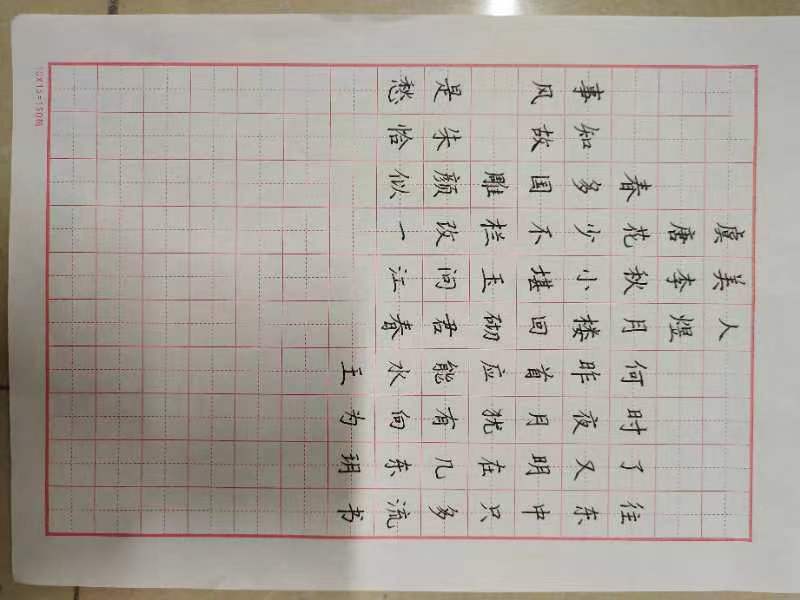 虞美人
唐李煜
春花秋月何时了往
事知多少小楼昨夜又东
风故国不堪回首月明中
雕栏玉砌应犹在只
是朱颜改问君能有几多
愁恰似一江春水向东流
王为玥书
10X15=150格